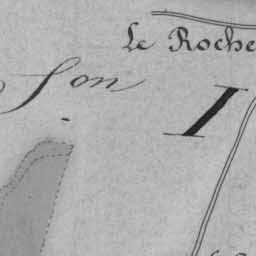 Le Roche
son
I